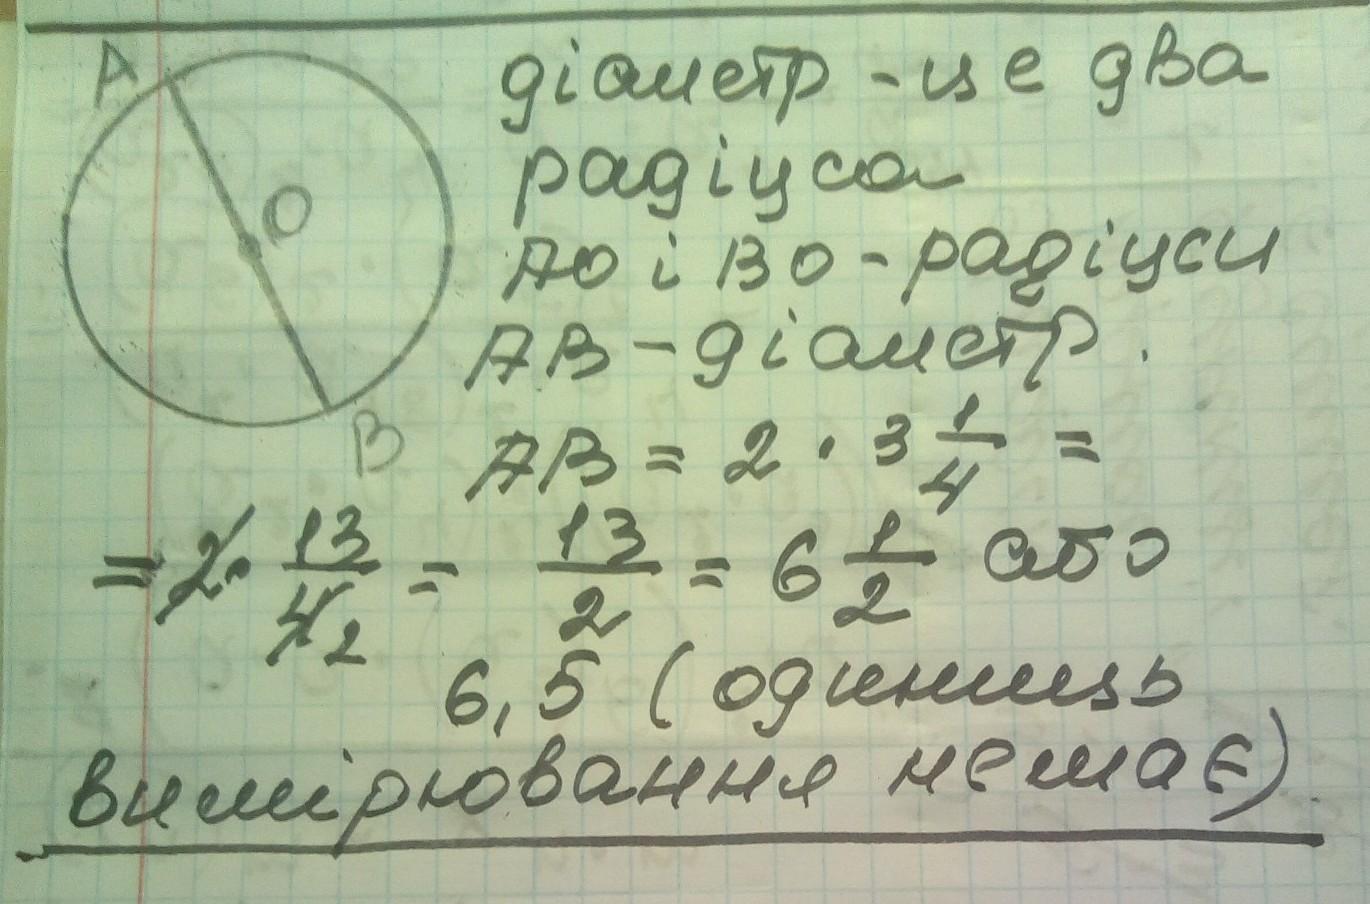 A
O
B
діаметр - це два
радіуса
AO і BO - радіуси
AB - діаметр.
AB = 2 · 3 1/4 =
= 2 · 13/4 2 = 13/2 = 6 1/2 або
6,5 (одиниць
вимірювання немає)